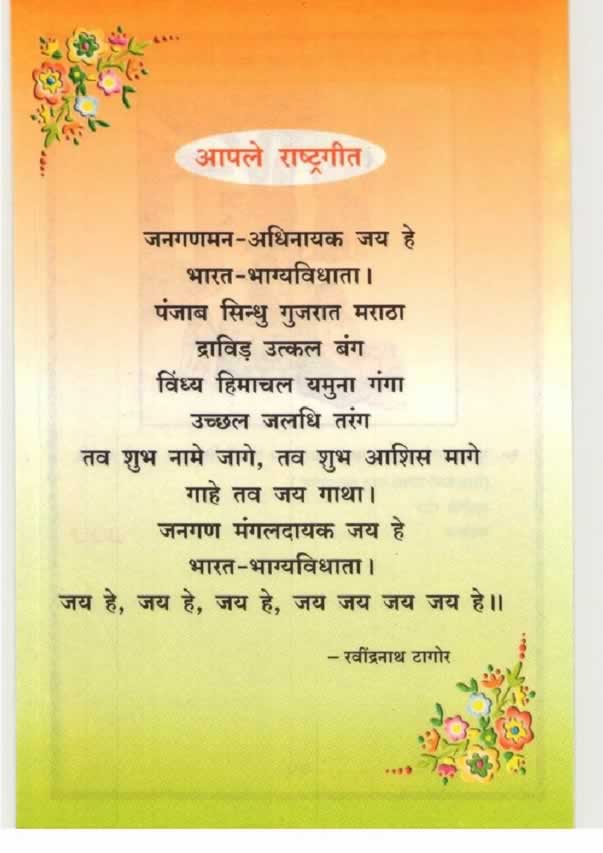 आपले राष्ट्रगीत
जनगणमन-अधिनायक जय हे
भारत-भाग्यविधाता।
पंजाब सिन्धु गुजरात मराठा
द्राविड़ उत्कल बंग
विंध्य हिमाचल यमुना गंगा
उच्छल जलधि तरंग
तव शुभ नामे जागे, तव शुभ आशिस मागे
गाहे तव जय गाथा।
जनगण मंगलदायक जय हे
भारत-भाग्यविधाता।
जय हे, जय हे, जय हे, जय जय जय जय हे।।
– रवींद्रनाथ टागोर